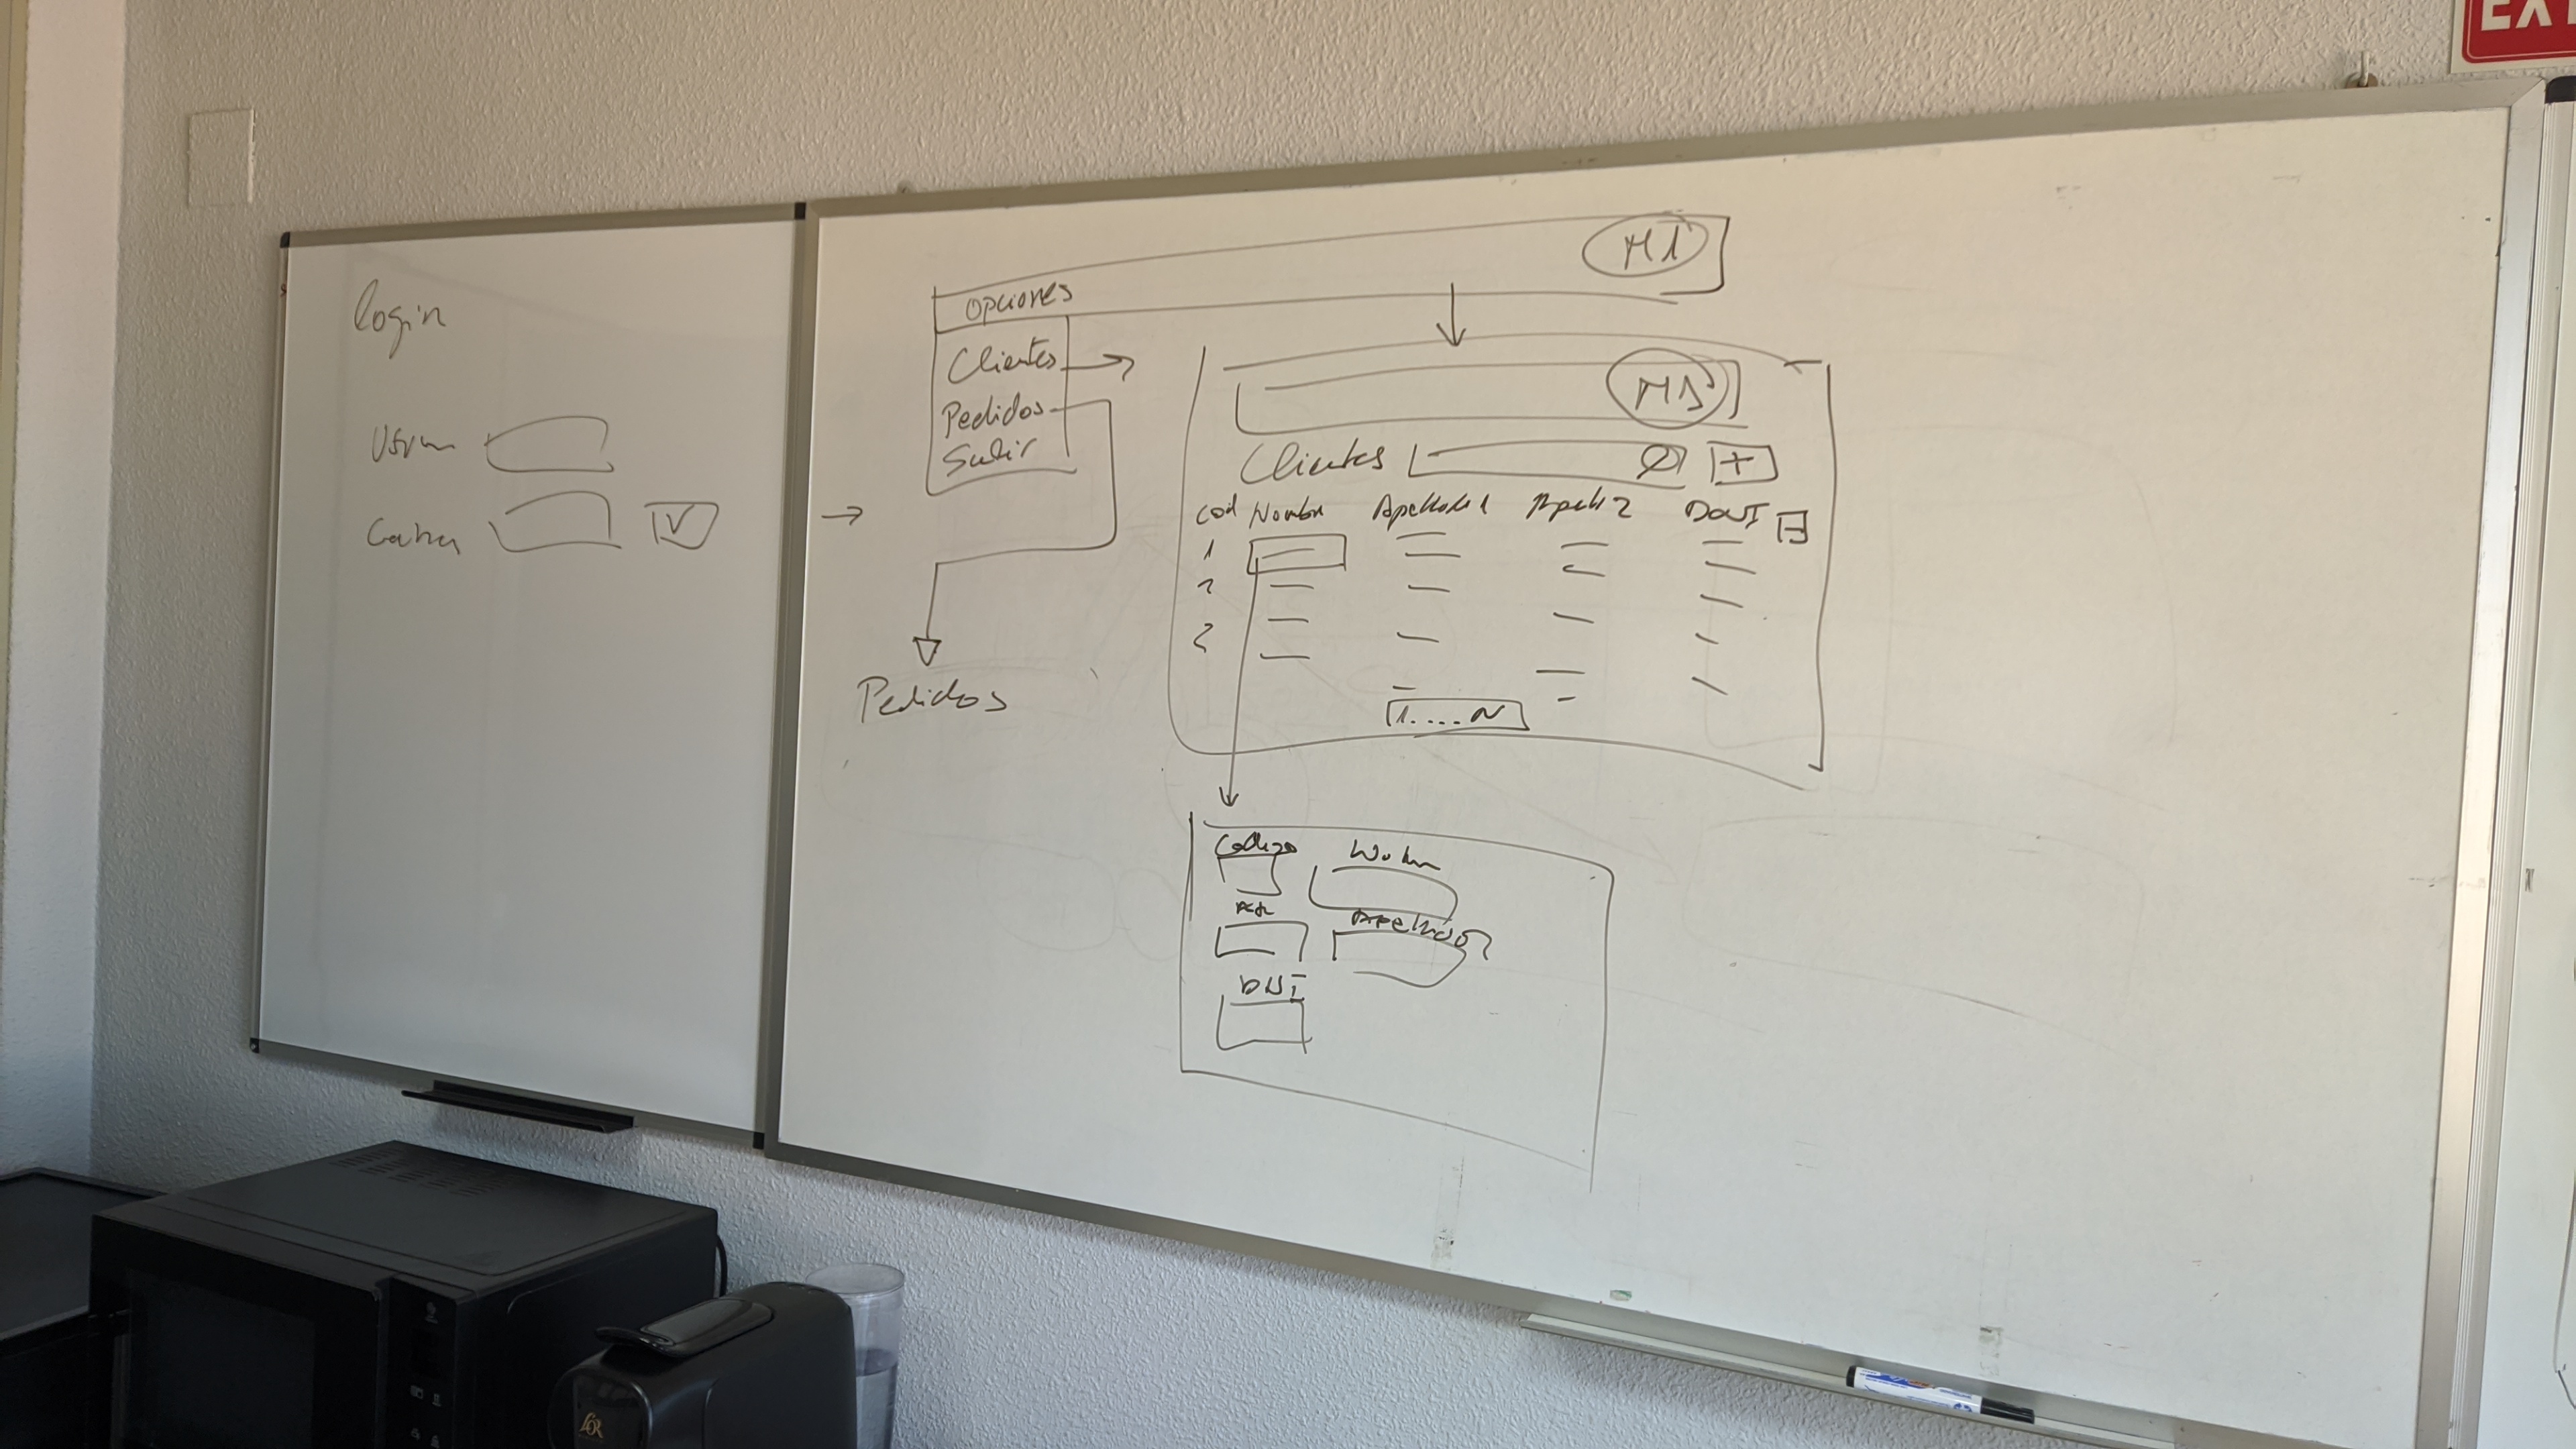 EXT
login
Contra
V
M1
Opciones
Clientes
Pedidos
Salir
Pedidos
M1
Clientes
+
Cod Nombre Apellido1 Apell 2 DNI
1
2
1....N
Codigo Nombre
Apellido2
DNI
L'OR